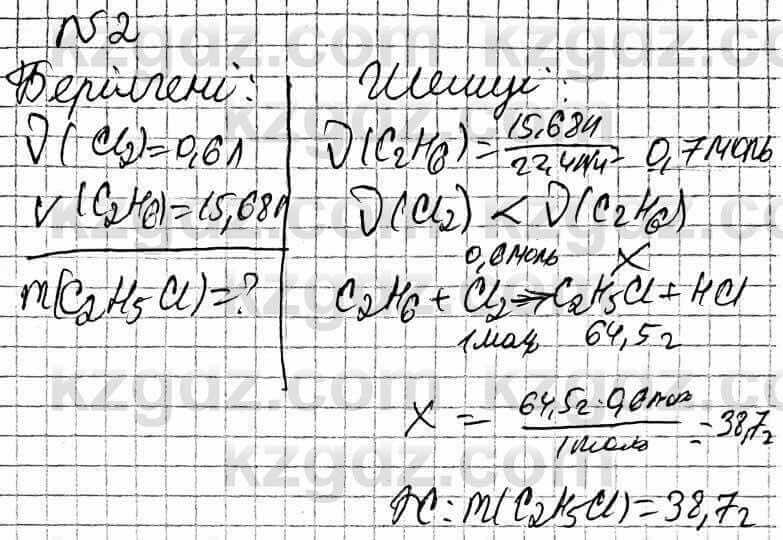 №2
Берілгені:
ν(Cl₂)=0,6л
V(C₂H₆)=15,68л
m(C₂H₅Cl)=?
Шешуі:
ν(C₂H₆)=15,68л/22,4л/м=0,7моль
ν(Cl₂)<ν(C₂H₆)
0,6моль X
C₂H₆+Cl₂→C₂H₅Cl+HCl
1моль 64,5г
X = 64,5г·0,6моль/1моль=38,7г
Ж: m(C₂H₅Cl)=38,7г
kzgdz.com